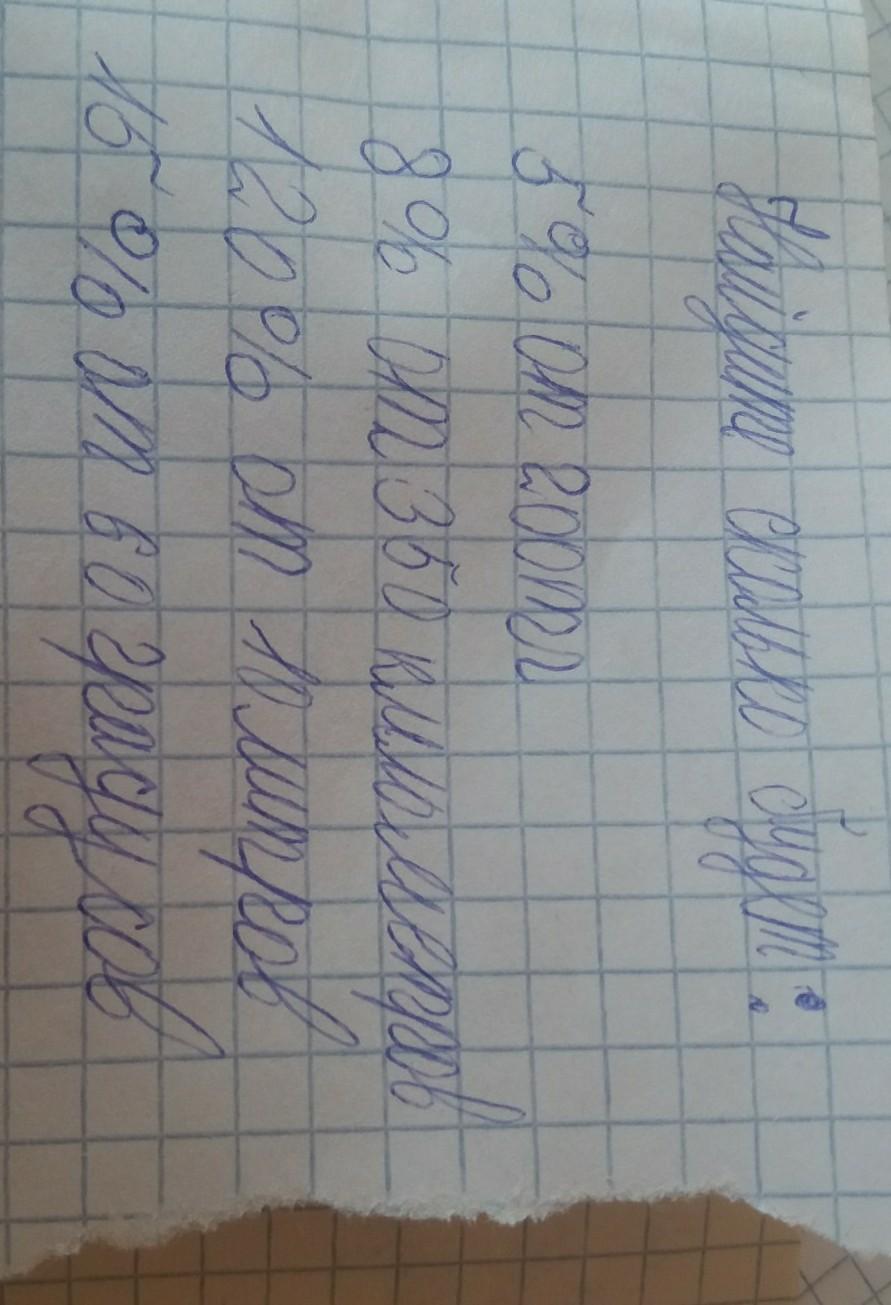 Найдите сколько будет:
5% от 200тг
8% от 350 километров
120% от 10 литров
15% от 60 градусов